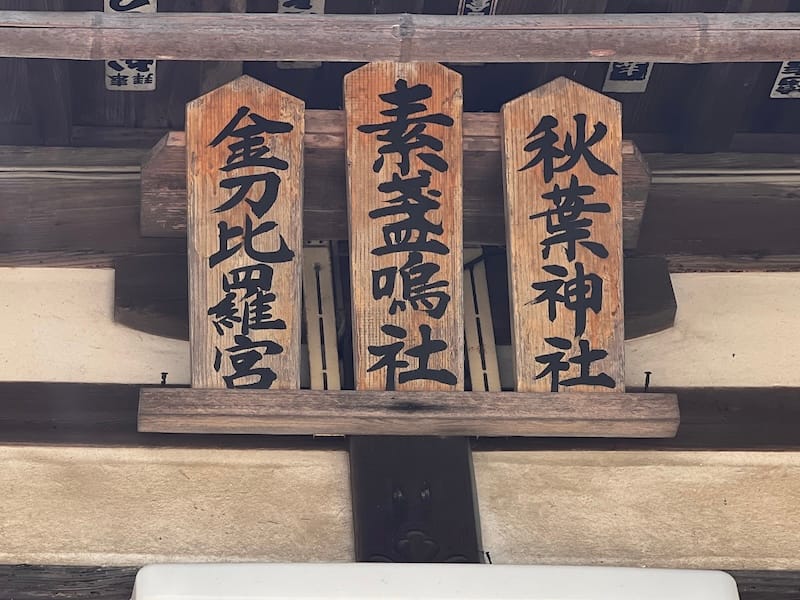 秋葉神社
素盞嗚社
金刀比羅宮
奉拝